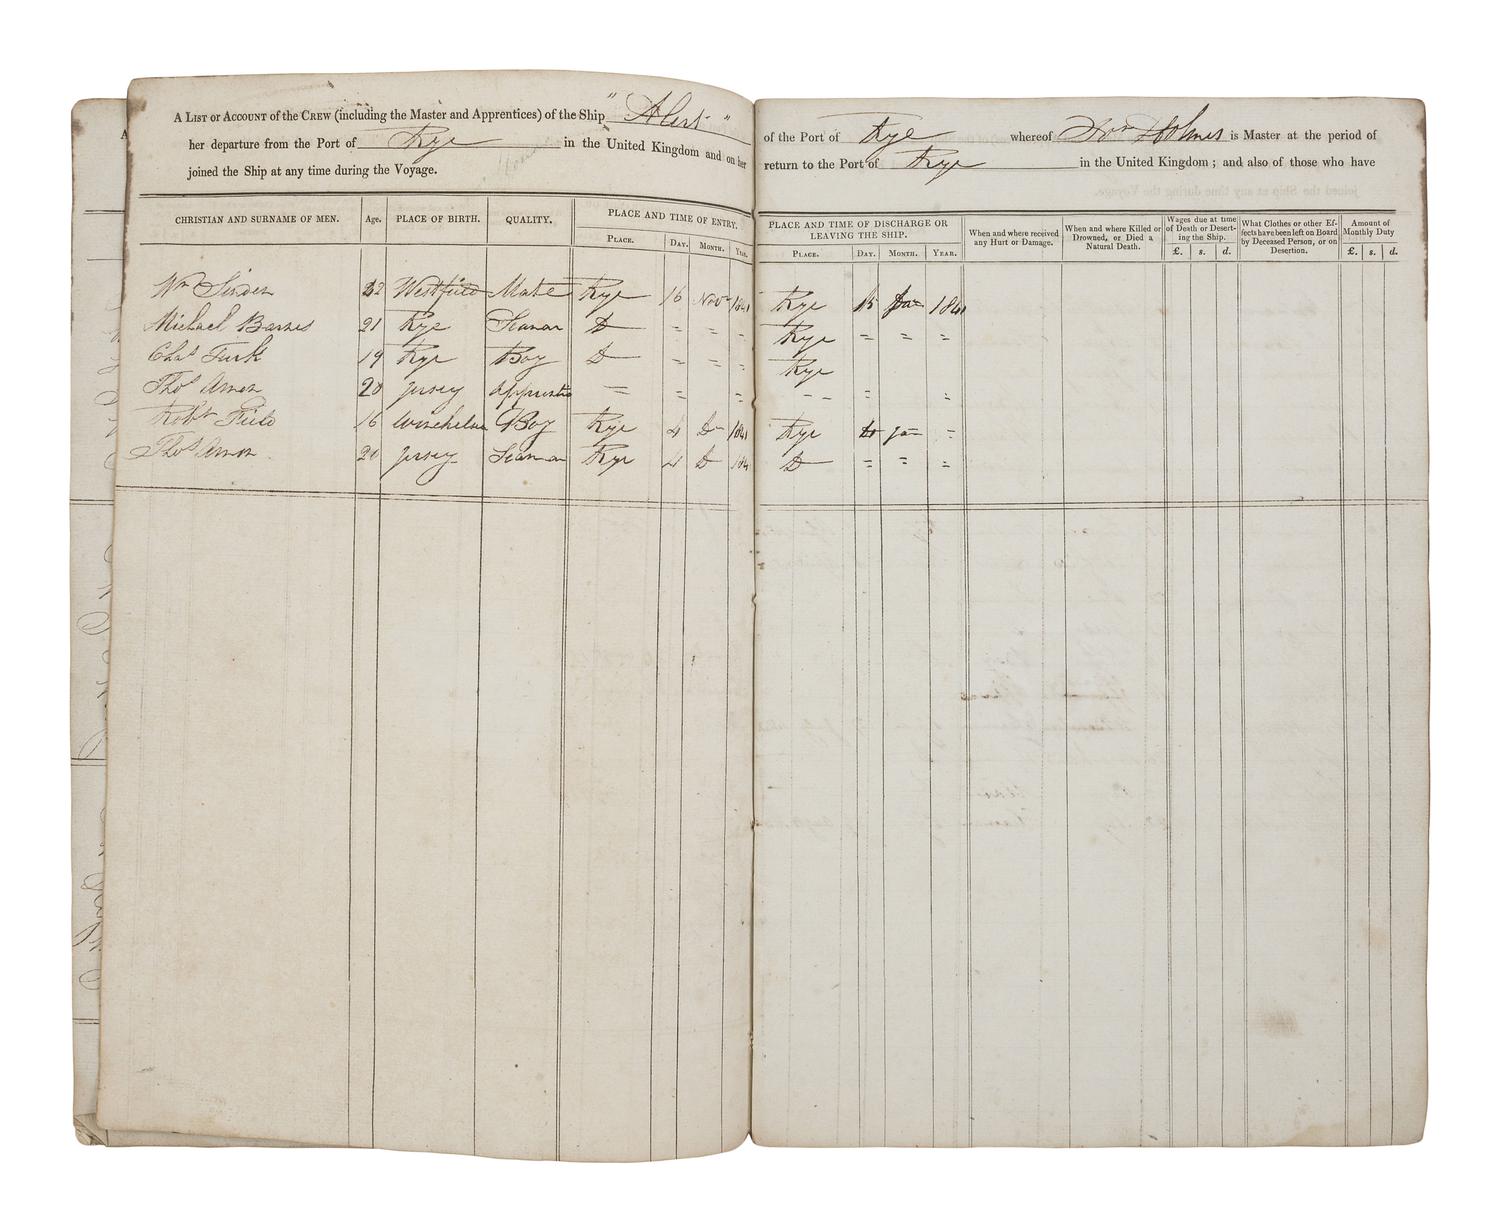 A LIST OR ACCOUNT of the CREW (including the Master and Apprentices) of the Ship "Alert"
her departure from the Port of Rye in the United Kingdom and on her
joined the Ship at any time during the Voyage.
CHRISTIAN AND SURNAME OF MEN. Age. PLACE OF BIRTH. QUALITY. PLACE AND TIME OF ENTRY.
PLACE. DAY. MONTH. YEAR.
Wm Sinden 22 Westfield Mate Rye 16 Novr 1841
Michael Barnes 21 Rye Seaman D = = =
Chas Turk 19 Rye Boy D = = =
Thos Amon 20 Jersey Apprentice = = =
Robt Field 16 Winchelsea Boy Rye 4 D 1841
Thos Amon 20 Jersey Seaman Rye 4 D 184
of the Port of Rye whereof Wm Holmes is Master at the period of
return to the Port of Rye in the United Kingdom ; and also of those who have
PLACE AND TIME OF DISCHARGE OR LEAVING THE SHIP. When and where received any Hurt or Damage. When and where Killed or Drowned, or Died a Natural Death. Wages due at time of Death or Deserting the Ship. What Clothes or other Effects have been left on Board by Deceased Person, or on Desertion. Amount of Monthly Duty
PLACE. DAY. MONTH. YEAR. £. s. d. £. s. d.
Rye 15 Jan 1841
Rye = = =
Rye
- - = =
Rye Jan =
D = = =